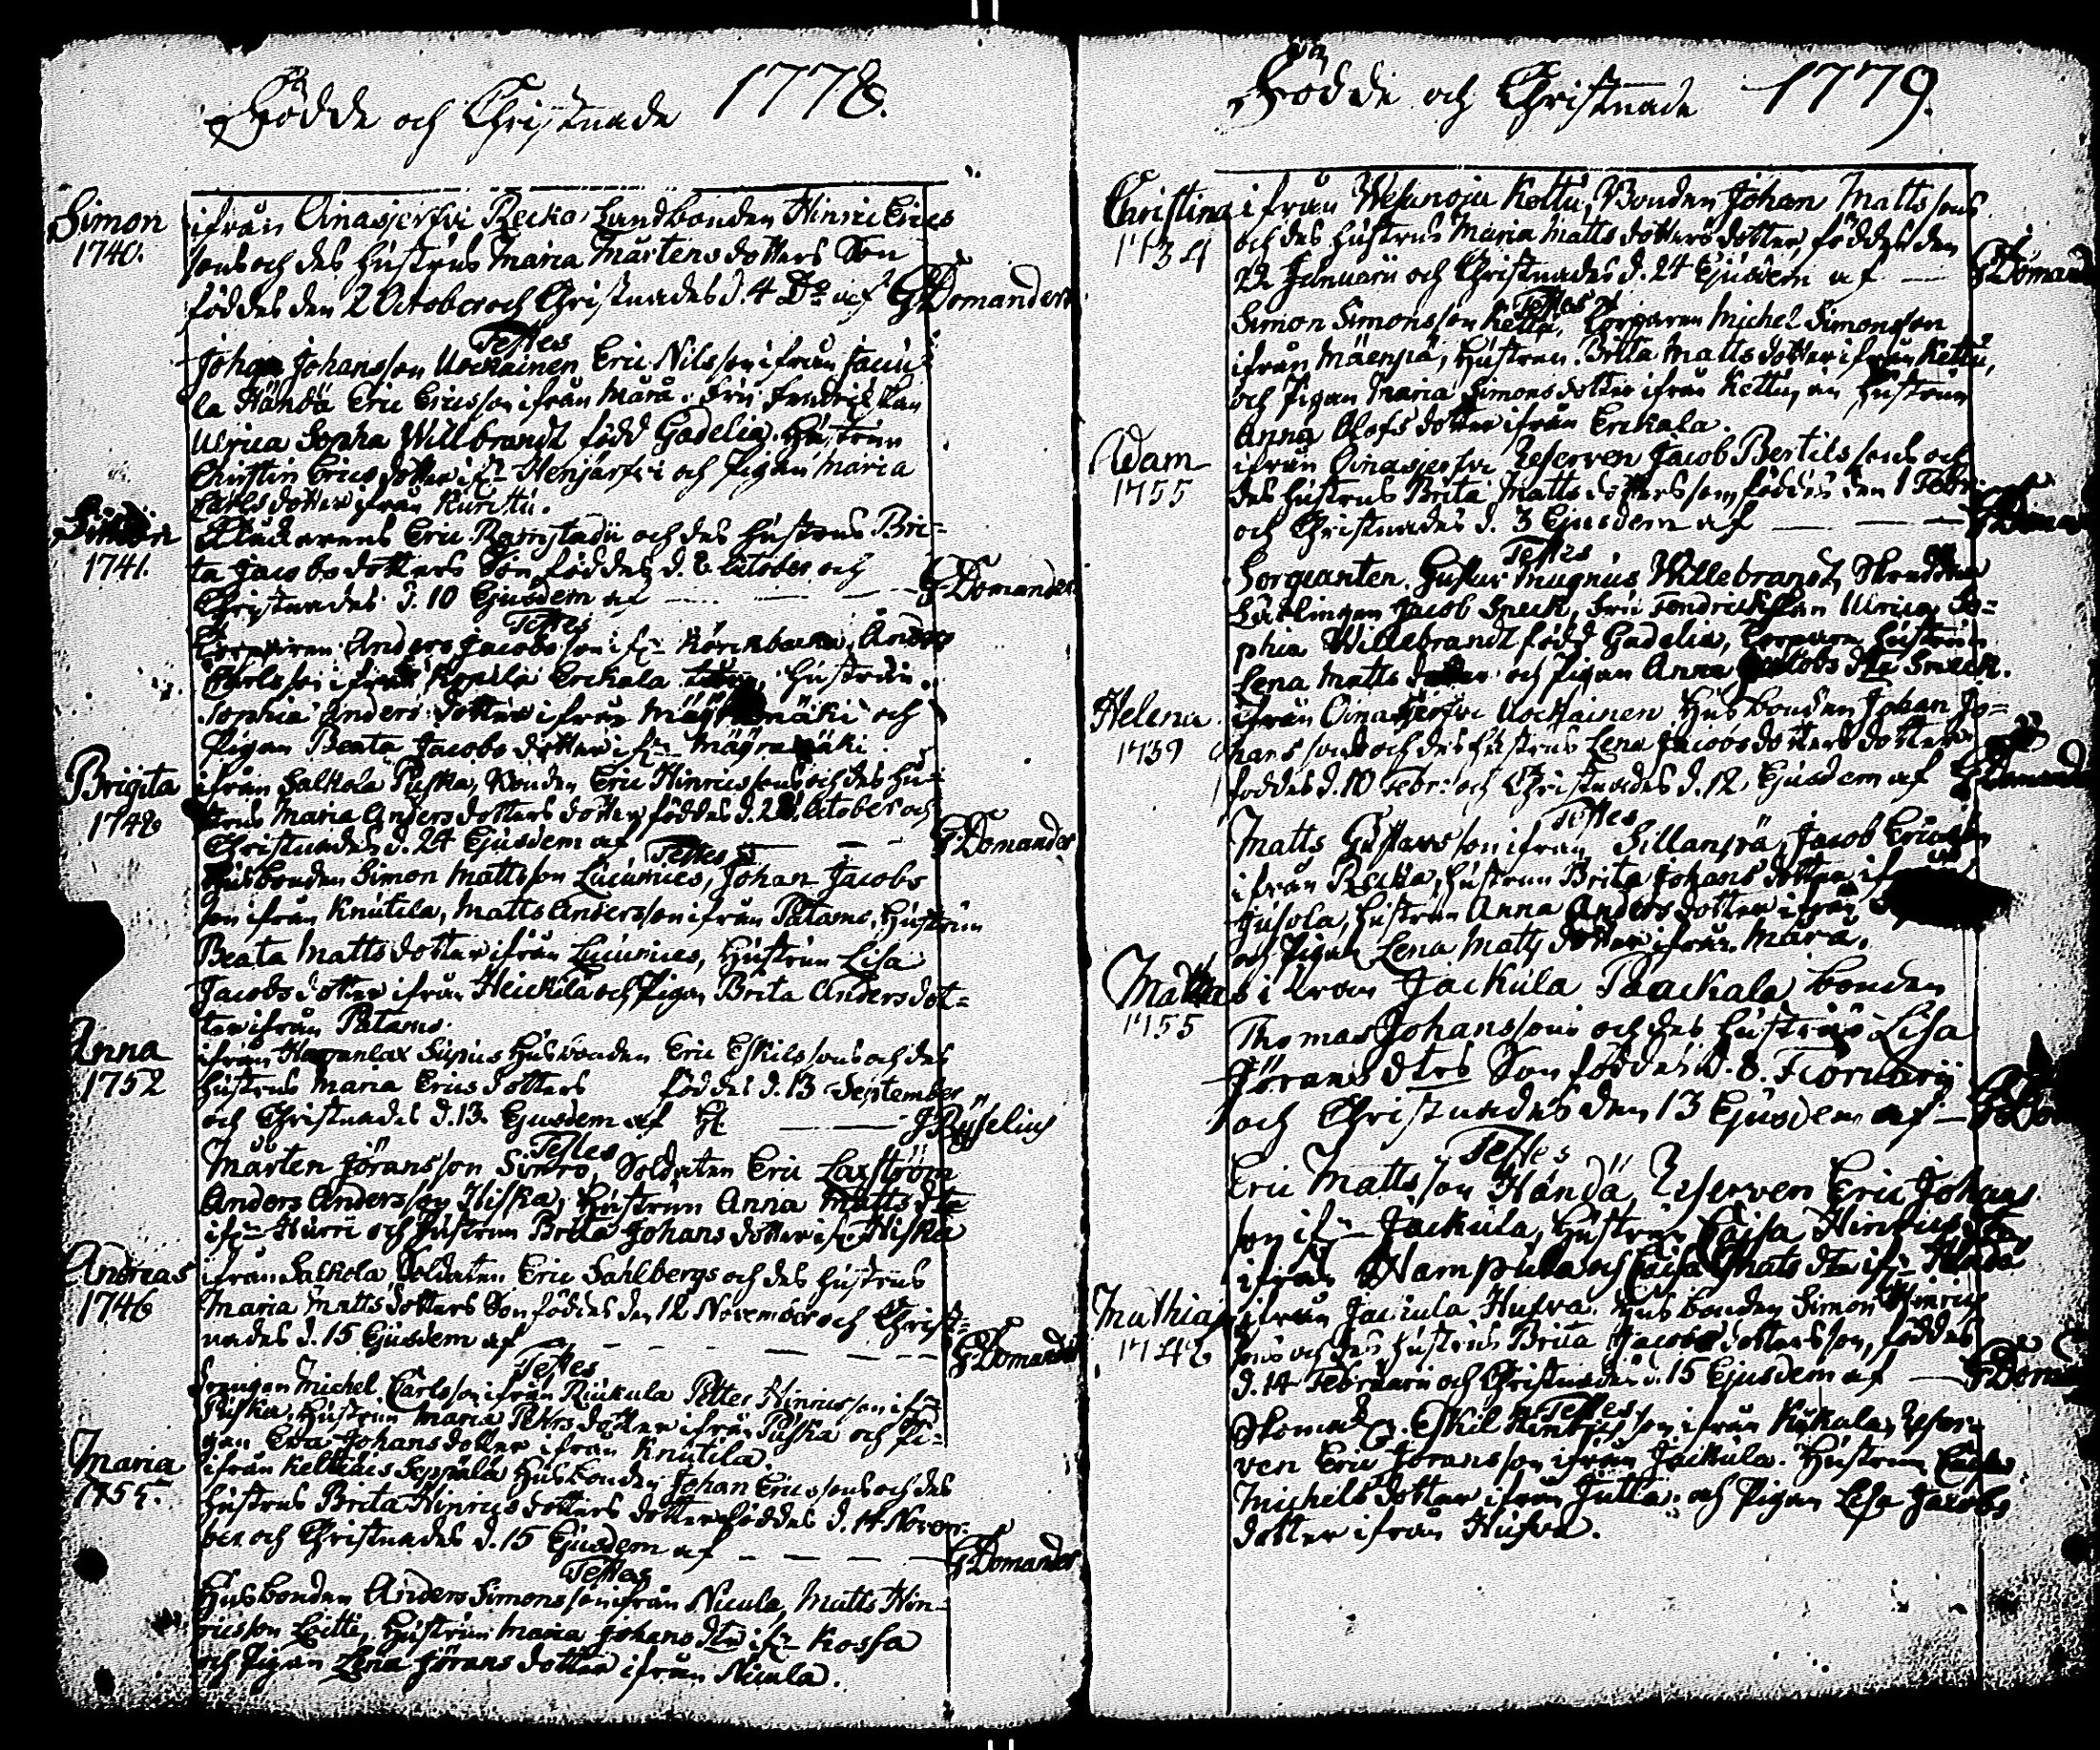 Födde och Christnade 1778.
Simon ifrån Oinasjerfvi Recko Landbonden Hinric Erics
1740. sons och des hustrus Maria Mårtens dotters Son
föddes den 2 October och Christnades d. 4 Do af G Domander
Testes
Johan Johansson Uockainen Eric Nilsson ifrån Jacu
la Händä Eric Ericsson ifrån Mara. Fru Fendrickskan
Ulrica Sophia Willbrandt född Gadelia. Hustrun
Christin Erics dotter ifr Henjärfvi och Pigan Maria
Carls dotter ifrån Kurittu.
1741. Eric och des hustrus Bri-
ta Jacobs dotters Son föddes d. 8 October och
Christnades d. 10 Ejusdem af G Domander
Testes
Anders Jacobsson ifr Anders
Carlsson ifrån Erckala hustrun
Sophia Anders dotter ifrån och
Pigan Beata Jacobs dotter ifr Mäyramäki
Brigita ifrån Salkola Puska, Bonden Eric Hinricssons och des hu-
strus Maria Anders dotters dotter föddes d. October och
Christnades d. 24 Ejusdem af G Domander
Testes
Husbonden Simon Mattsson Johan Jacobs
son ifrån Knutila, Matts Andersson ifrån Patamo, Hustrun
Beata Matts dotter ifrån Hustrun Lisa
Jacobs dotter ifrån Heickilä och Pigan Brita Anders dot-
ter ifrån Patamo.
Anna ifrån Husbonden Eric Eskilssons och des
1752 hustrus Maria Erics dotters föddes d. 13 September
och Christnades d. 13. Ejusdem af H. J Rysselius
Testes
Mårten Jöransson Soldaten Eric Laxström
Anders Andersson Hiska, Hustrun Anna Matts dtr
ifr Hurri och hustrun Brita Johans dotter ifr Hiska
Andreas ifrån Salkola Soldaten Eric Sahlbergs och des hustrus
1746 Maria Matts dotters Son föddes den 12 November och Christ-
nades d. 15 Ejusdem af G Domander
Testes
Drängen Michel Carlsson ifrån Riickula Petter Hinricsson ifr
Puska, Hustrun Maria Petters dotter ifrån Puska och Pi-
gan Eva Johans dotter ifrån Knutila.
Maria ifrån Keltiäis Seppälä Husbonden Johan Ericssons och des
1755. hustrus Brita Hinrics dotters dotter föddes d. 14 Novem-
ber och Christnades d. 15 Ejusdem af G Domander
Testes
Husbonden Anders Simonsson ifrån Nicula, Matts Hin-
ricsson Loitti, Hustrun Maria Johans dtr ifr Kossa
och Pigan Lena Jörans dotter ifrån Nicula.
Födde och Christnade 1779.
Christina ifrån Kettu, Bonden Johan Matts sons
1734 och des hustrus Maria Matts dotters dotter, föddes den
22 Januarii och Christnades d. 24 Ejusdem af G Domand
Testes
Simon Simonsson Kettu, Torparen Michel Simonsson
ifrån Mäenpä, Hustrun Britta Matts dotter ifrån Kettu,
och Pigan Maria Simons dotter ifrån Kettu, hustrun
Anna Olofs dotter ifrån Erckala.
Adam ifrån Oinasjerfvi Reserven Jacob Bertils sons och
1755 des hustrus Brita Matts dotters son föddes den 1 Febr
och Christnades d. 3 Ejusdem af
Testes
Sergeanten Gustav Magnus Willebrandt,
Jacob Smeck, Fru Fendrickskan Ulrica So-
phia Willebrandt född Gadelia, hustrun
Lena Matts dotter och Pigan Anna Jacobs dtr Smeck.
Helena ifrån Oinasjerfvi Uockainen Husbonden Johan Jo-
1739 hans sons och des hustrus Lena Jacobs dotters dotter
föddes d. 10 Febr: och Christnades d. 12 Ejusdem af
Testes
Matts Gustavsson ifrån Sillanpä, Jacob Ericsson
ifrån Recka, hustrun Brita Johans dotter
Jusola, hustrun Anna Anders dotter ifrån
och Pigan Lena Matts dotter ifrån Mara.
Matthias ifrån Jackula Paackala bonden
1755 Thomas Johanssons och des hustrus Lisa
Jörans dtrs Son föddes d. 8. Februarii
och Christnades den 13 Ejusdem af
Testes
Eric Mattsson Händä, Reserven Eric Johans
son ifr Jackula, Hustrun Caisa Hinrics dtr
ifrån Nampula och Caisa Mats dtr ifr
Mathias ifrån Jacula Hufva. Husbonden Simon Hinrics
1742 sons och des hustrus Brita Jacobs dotters son, föddes
d. 14 Februarii och Christnades d. 15 Ejusdem af
Testes
Eskil Hinricsson ifrån Kukala, Reser-
ven Eric Jöransson ifrån Jackula. Hustrun
Michels dotter ifrån Jutila. och Pigan Lisa Jacobs
dotter ifrån Hufva.